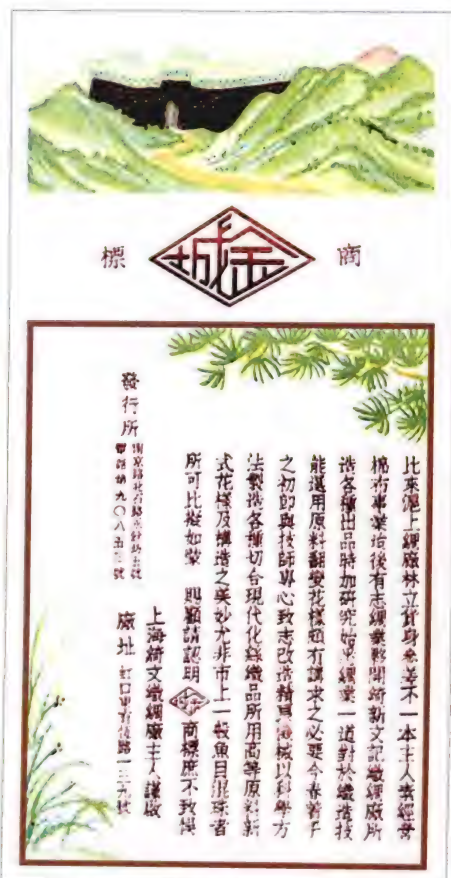 商標
金城
比來滬上綢廠林立貨身參差不一本主人素經營
棉布事業治後有志綢業歟開綺新文記織綢廠所
造各種出品時加研究始果綢業一道對於織造技
能選用原料翻變花樣頗有講求之必要今春著手
之初即與技師專心致志改造精良機械以科學方
法製造各種切合現代化絲織品所用高等原料新
式花樣及構造之美妙尤非市上一般魚目混珠者
所可比擬如蒙 賜顧請認明 商標庶不致悞
上海綺文織綢廠主人謹啟
廠址 虹口 路一三九號
發行所
電話 九〇八五 號